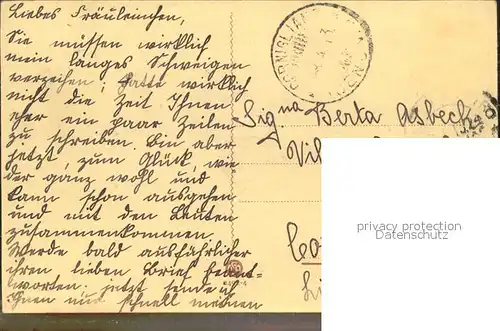 Liebes Fräuleinchen,
Sie müssen wirklich
mein langes Schweigen
verzeihen; hatte wirklich
nicht die Zeit Ihnen
eher ein paar Zeilen
zu schreiben. Bin aber
jetzt, zum Glück wie
der ganz wohl und
kann schon ausgehen
und mit den Leuten
zusammenkommen.
Werde bald ausführlicher
ihren lieben Brief beant-
worten. jetzt sende ich
Ihnen nur schnell meinen
Sig na Berta Asbeck
Vil
Co
privacy protection
Datenschutz